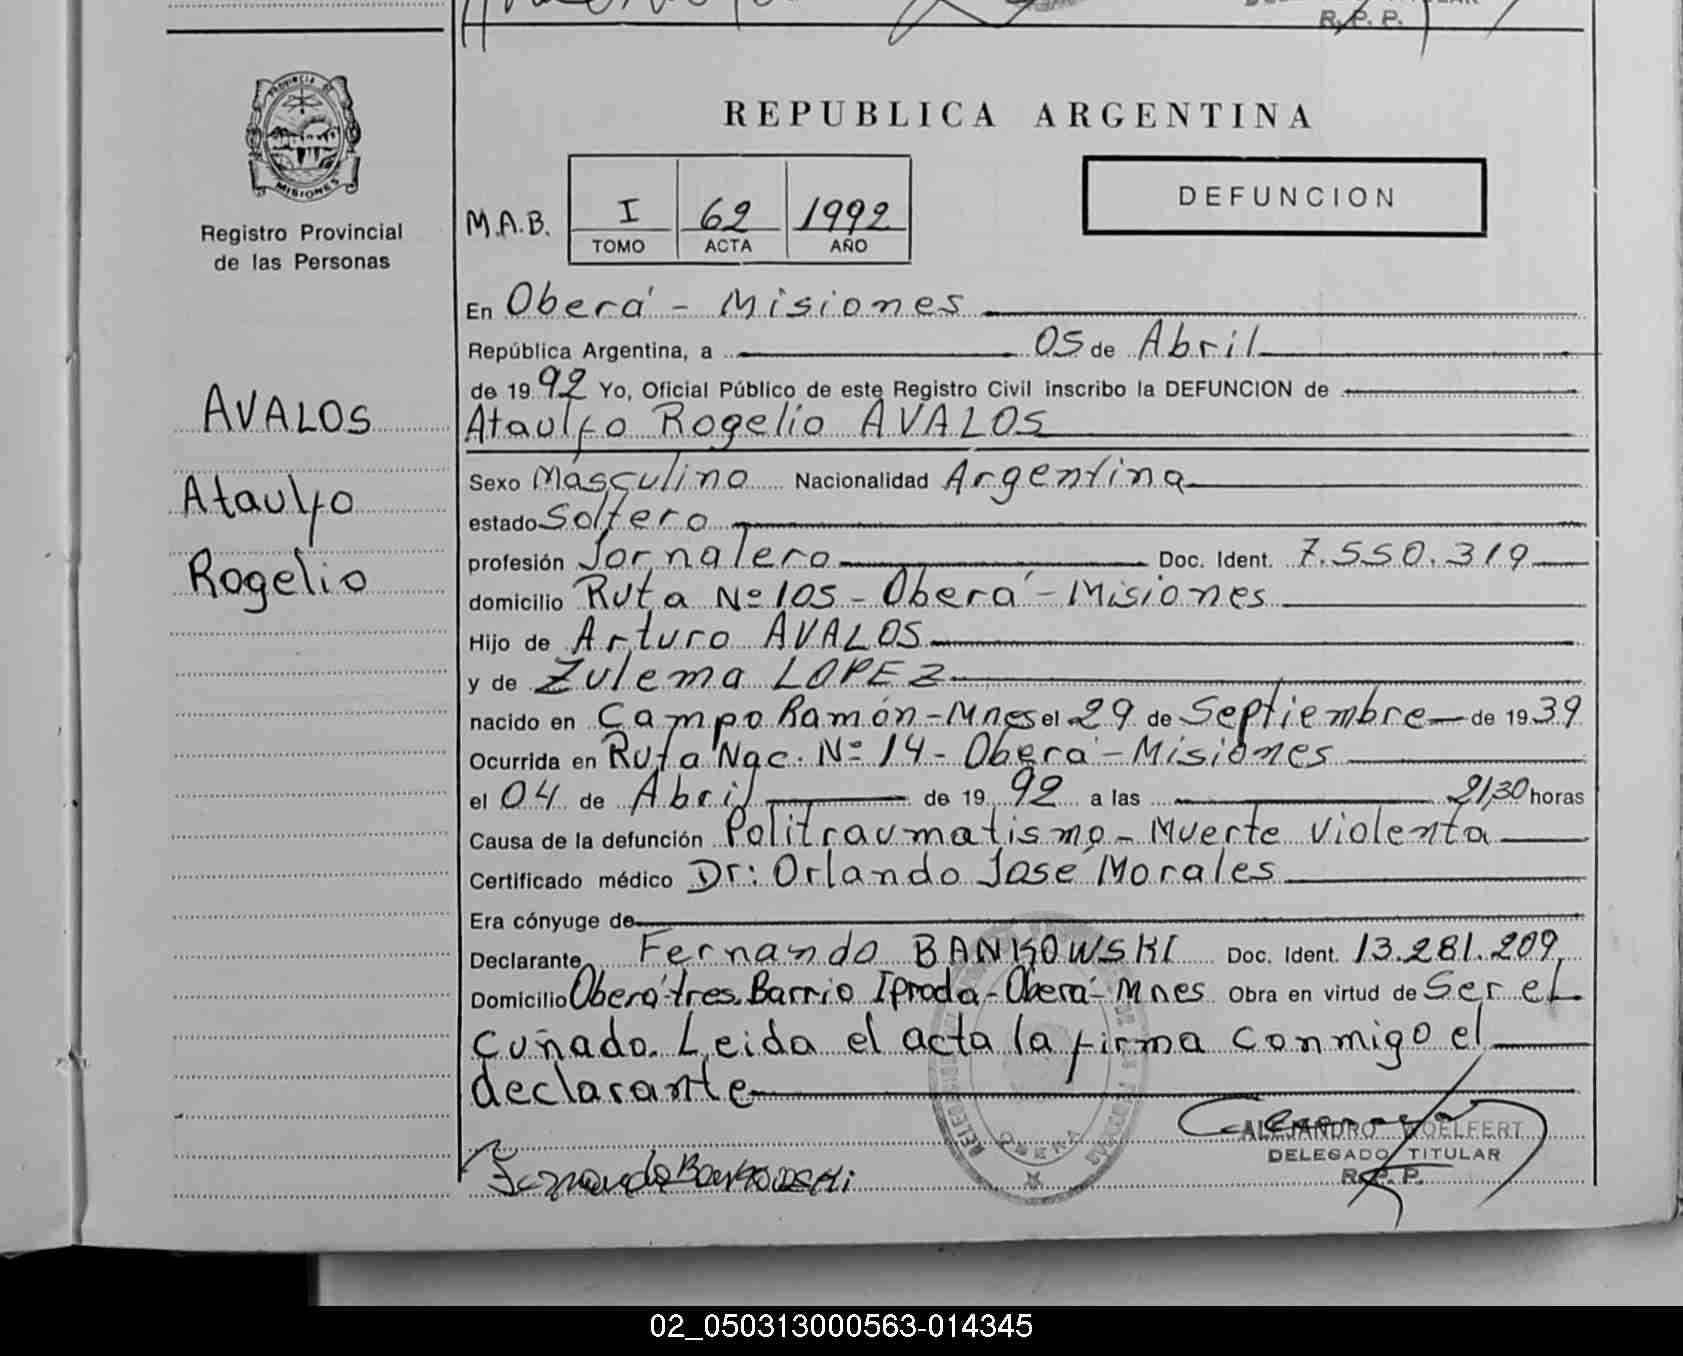 R. P. P.
PROVINCIA DE
MISIONES
Registro Provincial
de las Personas
AVALOS
Ataulfo
Rogelio
REPUBLICA ARGENTINA
DEFUNCION
M.A.B. I 62 1992
TOMO ACTA AÑO
En Oberá - Misiones
República Argentina, a 05 de Abril
de 1992 Yo, Oficial Público de este Registro Civil inscribo la DEFUNCION de
Ataulfo Rogelio AVALOS
Sexo Masculino Nacionalidad Argentina
estado Soltero
profesión Jornalero Doc. Ident. 7.550.319
domicilio Ruta Nº 105 - Oberá - Misiones
Hijo de Arturo AVALOS
y de Zulema LOPEZ
nacido en Campo Ramón - Mnes el 29 de Septiembre de 1939
Ocurrida en Ruta Nac. Nº 14 - Oberá - Misiones
el 04 de Abril de 1992 a las 21,30 horas
Causa de la defunción Politraumatismo - Muerte violenta
Certificado médico Dr: Orlando José Morales
Era cónyuge de
Declarante Fernando BANKOWSKI Doc. Ident. 13.281.209
Domicilio Oberá-tres. Barrio Iproda - Oberá - Mnes Obra en virtud de Ser el
Cuñado. Leida el acta la firma conmigo el
declarante
Fernando Bankowski
ALEJANDRO WOELFERT
DELEGADO TITULAR
R. P. P.
OBERA
02_050313000563-014345